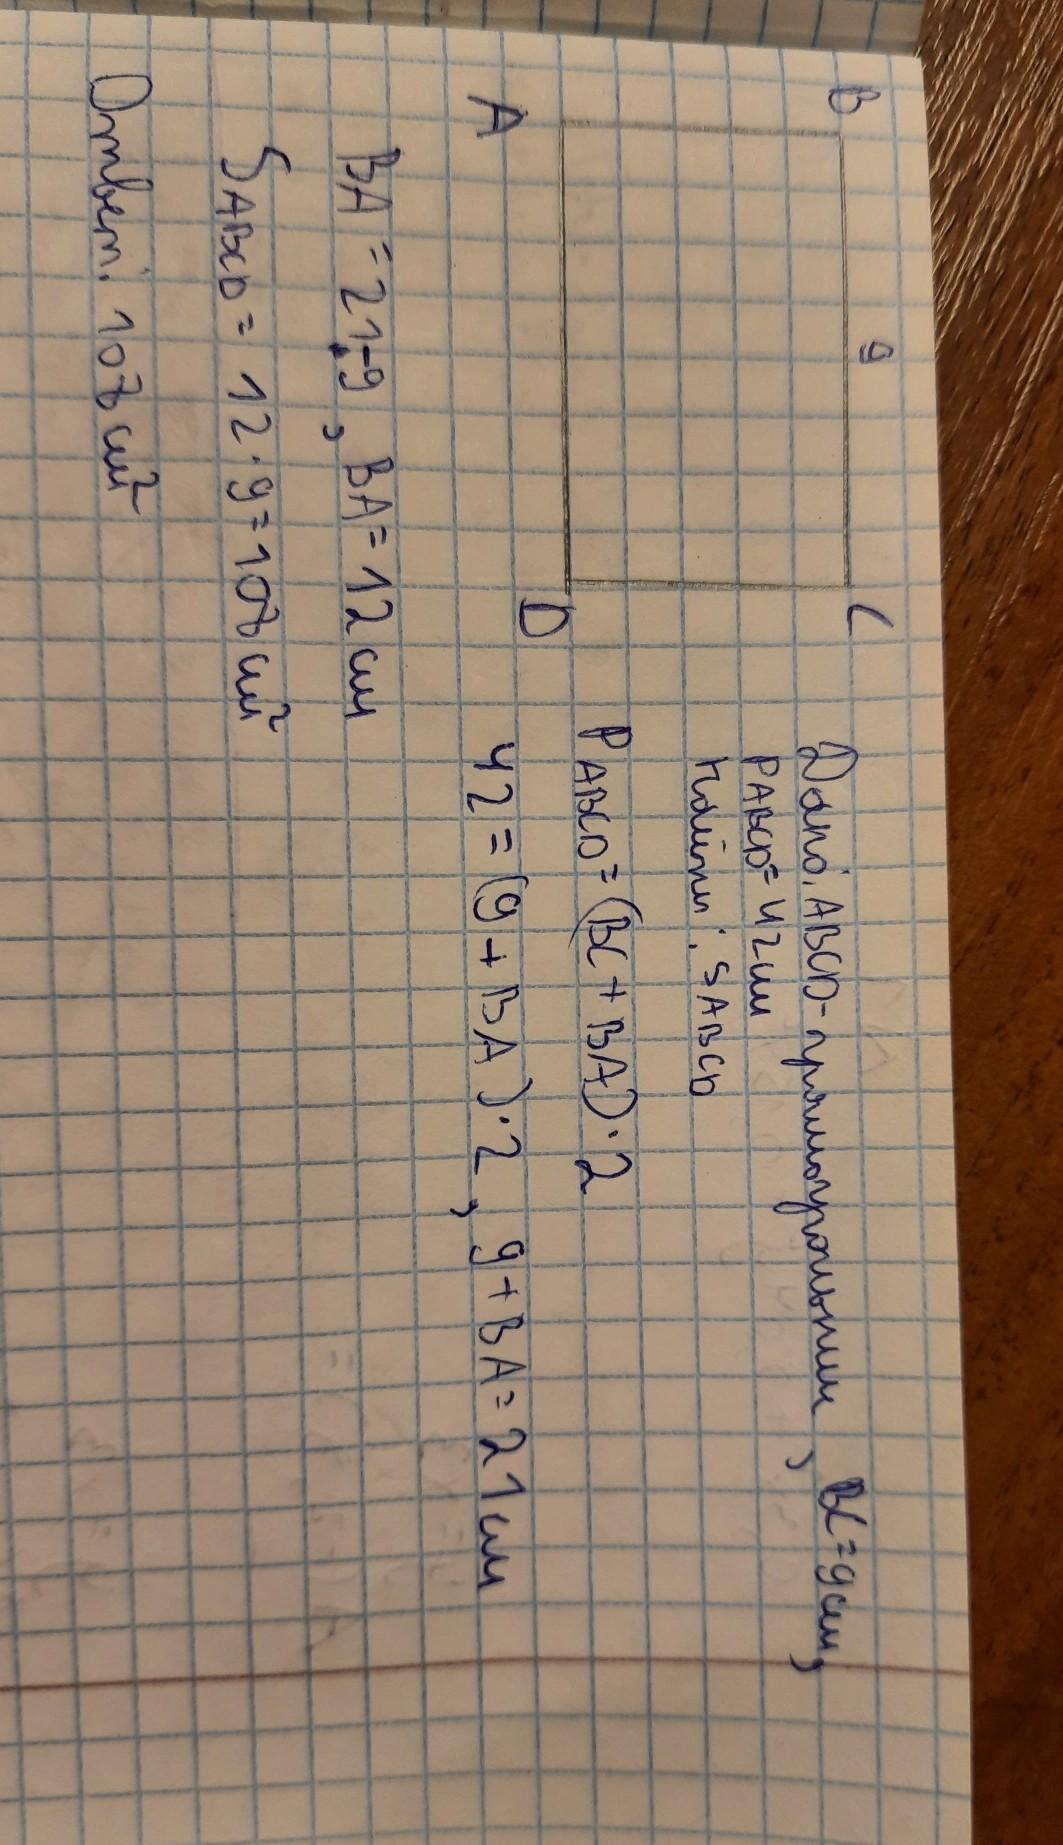 B 9 C
A D
Дано: ABCD - прямоугольник, BC = 9 см,
PABCD = 42 см
Найти: SABCD
PABCD = (BC + BA) · 2
42 = (9 + BA) · 2, 9 + BA = 21 см
BA = 21 - 9, BA = 12 см
SABCD = 12 · 9 = 108 см²
Ответ: 108 см²